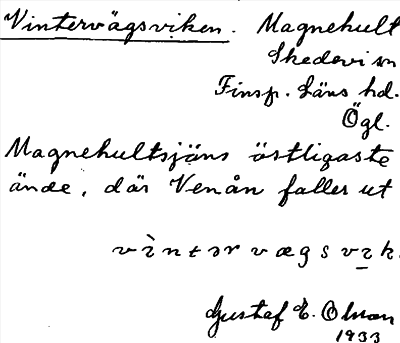 Vintervägsviken. Magnehult
Skedevi sn
Finsp. läns hd.
Ögl.
Magnehultsjöns östligaste
ände, där Venån faller ut
Gustaf E. Olsson
1933